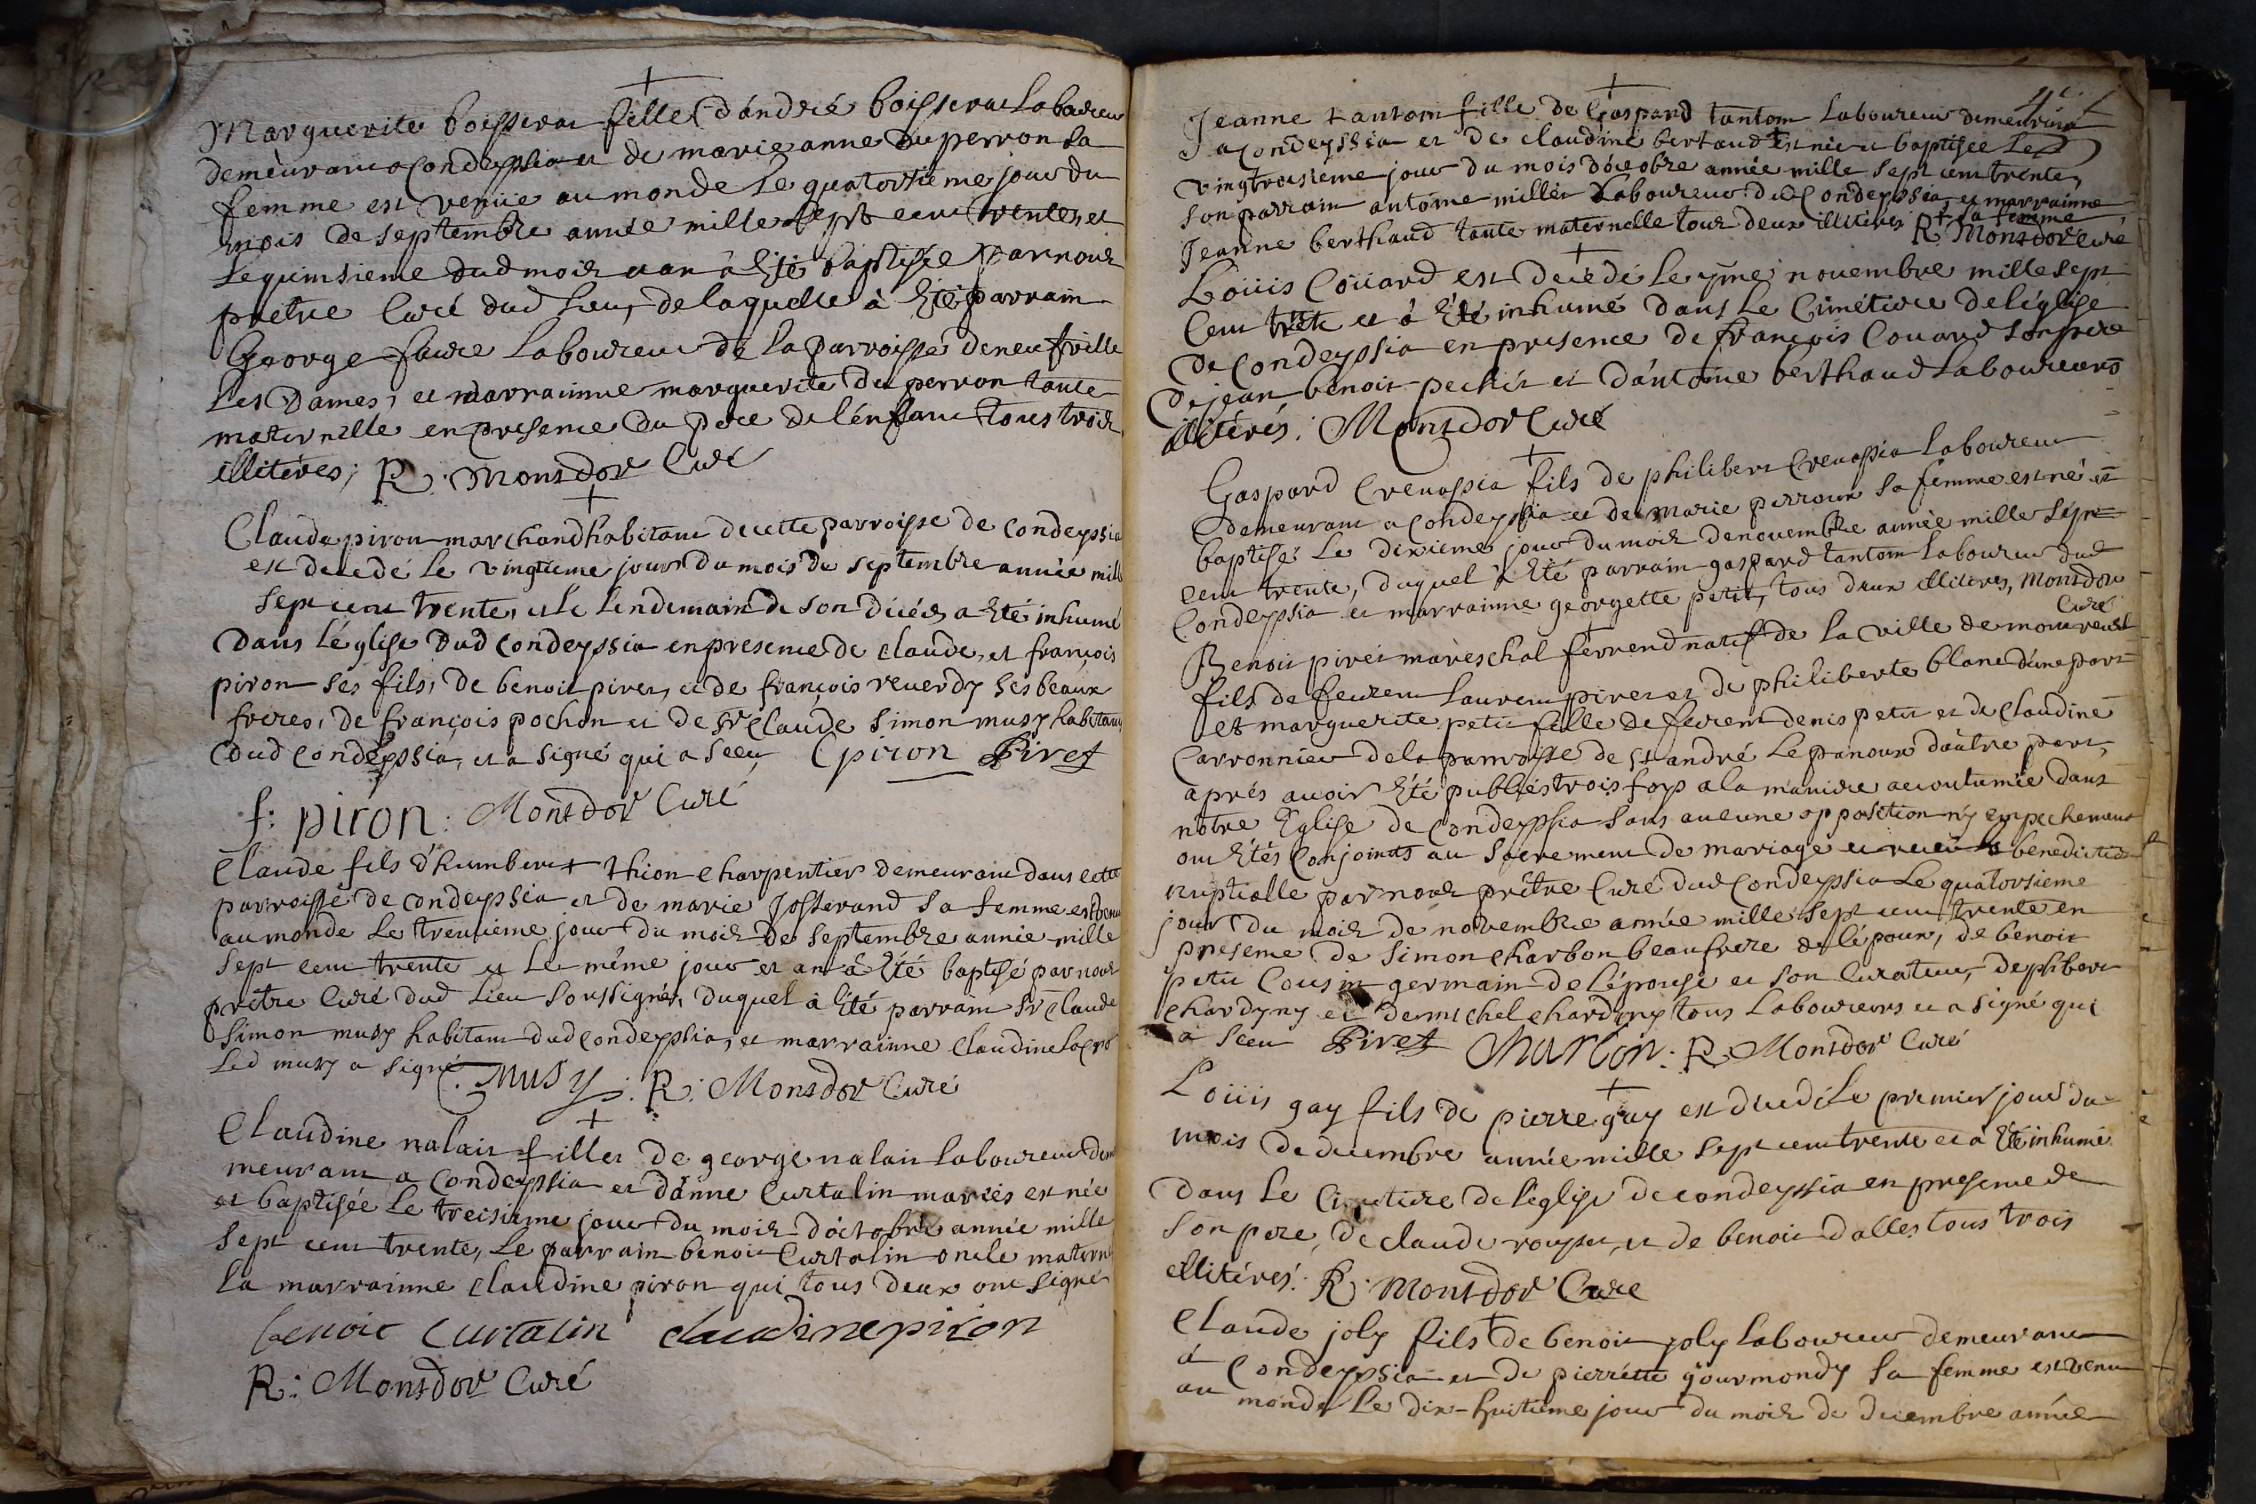 Marguerite boisserat fille d'andré boisserat Laboureur
demeurant a Condeyssia et de marie anne duperron sa
femme est venüe au monde Le quatorsieme jour du
mois de septembre année mille sept cent trente, et
Le quinsieme dud mois et an à Eté baptisée par nous
prêtre Curé dud Lieu, de laquelle à Eté parrain
George faure Laboureur de la parroisse de neufville
Les Dames, et marrainne marguerite du perron tante
maternelle en presence du pere de l'enfant tous trois
illitérés; R: Monsdor Curé
Claude piron marchand habitant de cette parroisse de Condeyssia
est decedé Le vingtieme jour du mois de septembre année mille
sept cent trente, et le Lendemain de son décés a Eté inhumé
Dans L'église dud Condeyssia en presence de claude, et françois
piron ses fils, de benoit piret, et de françois reverdy ses beaux
freres, de françois pochon et de Sr Claude Simon musy habitants
dud Condeyssia, et a signé qui a sceu Cpiron Piret
f: piron: Monsdor Curé
Claude fils d'humbert thion charpentier demeurant dans cette
parroisse de Condeyssia et de marie Josserand sa femme est venu
au monde Le trentieme jour du mois de septembre année mille
sept cent trente et Le même jour et an à Eté baptisé par nous
prêtre Curé dud Lieu soussigné, duquel à Eté parrain Sr Claude
Simon musy habitant dud Condeyssia, et marrainne Claudine
Led musy a signé C. Musy: R: Monsdor Curé
Claudine nalait fille de george nalait Laboureur de
meurant a Condeyssia et d'anne Curtalin mariés est née
et baptisée Le treisieme jour du mois d'octobre année mille
sept cent trente, Le parrain benoit Curtalin oncle maternel
La marrainne claudine piron qui tous deux ont signé
benoit Curtalin claudine piron
R: Monsdor Curé
Jeanne tantom fille de Gaspard tantom Laboureur demeurant
a Condeyssia et de claudine bertaud est née et baptisée Le
vingtroisieme jour du mois d'octobre année mille sept cent trente,
son parrain antoine millet Laboureur dud Condeyssia, et marrainne
sa femme
Jeanne berthaud tante maternelle tous deux illitérés R: Monsdor Curé
Loüis Coüard est decedé Le novembre mille sept
cent trente et à Eté inhumé dans Le Cimétiere de l'église
de Condeyssia en presence de françois Couard son pere
de jean benoit pechét et d'antoine berthaud Laboureurs
illitérés: Monsdor Curé
Gaspard Crevassia fils de philibert Crevassia Laboureur
demeurant a Condeyssia et de marie perroux sa femme est né et
baptisé Le dixieme jour du mois de novembre année mille sept
cent trente, duquel à Eté parrain gaspard tantom Laboureur dud
Condeyssia et marrainne georgette petit, tous deux illitérés, Monsdor
Curé
Benoit piret mareschal ferrend natif de La ville de
fils de Laurent piret et de philiberte blanc d'une part
et marguerite petit fille de denis petit et de Claudine
Carronnier de la parroisse de St andré Le panoux d'autre part,
aprés avoir Eté publiés trois foys a la maniere accoutumée dans
notre Eglise de Condeyssia sans aucune opposition ny empechement
ont Etés Conjoints au Sacrement de mariage et receu la benediction
nuptialle par nous prêtre Curé dud Condeyssia Le quatorsieme
jour du mois de novembre année mille sept cent trente en
presence de Simon charbon beaufrere de l'époux, de benoit
petit Cousin germain de L'épouse et son Curateur, de philibert
chardyny et de michel chardiny tous Laboureurs et a signé qui
a sceu Piret Charbon: R: Monsdor Curé
Loüis gay fils de pierre gay est decedé Le premier jour du
mois de decembre année mille sept cent trente et a Eté inhumé
Dans Le Cimetiere de l'église de condeyssia en presence de
son pere, de claude et de benoit dalles tous trois
illitérés: R: Monsdor Curé
Claude joly fils de benoit joly Laboureur demeurant
a Condeyssia et de pierrette gourmondy sa femme est venu
au monde Le dix-huitieme jour du mois de decembre année